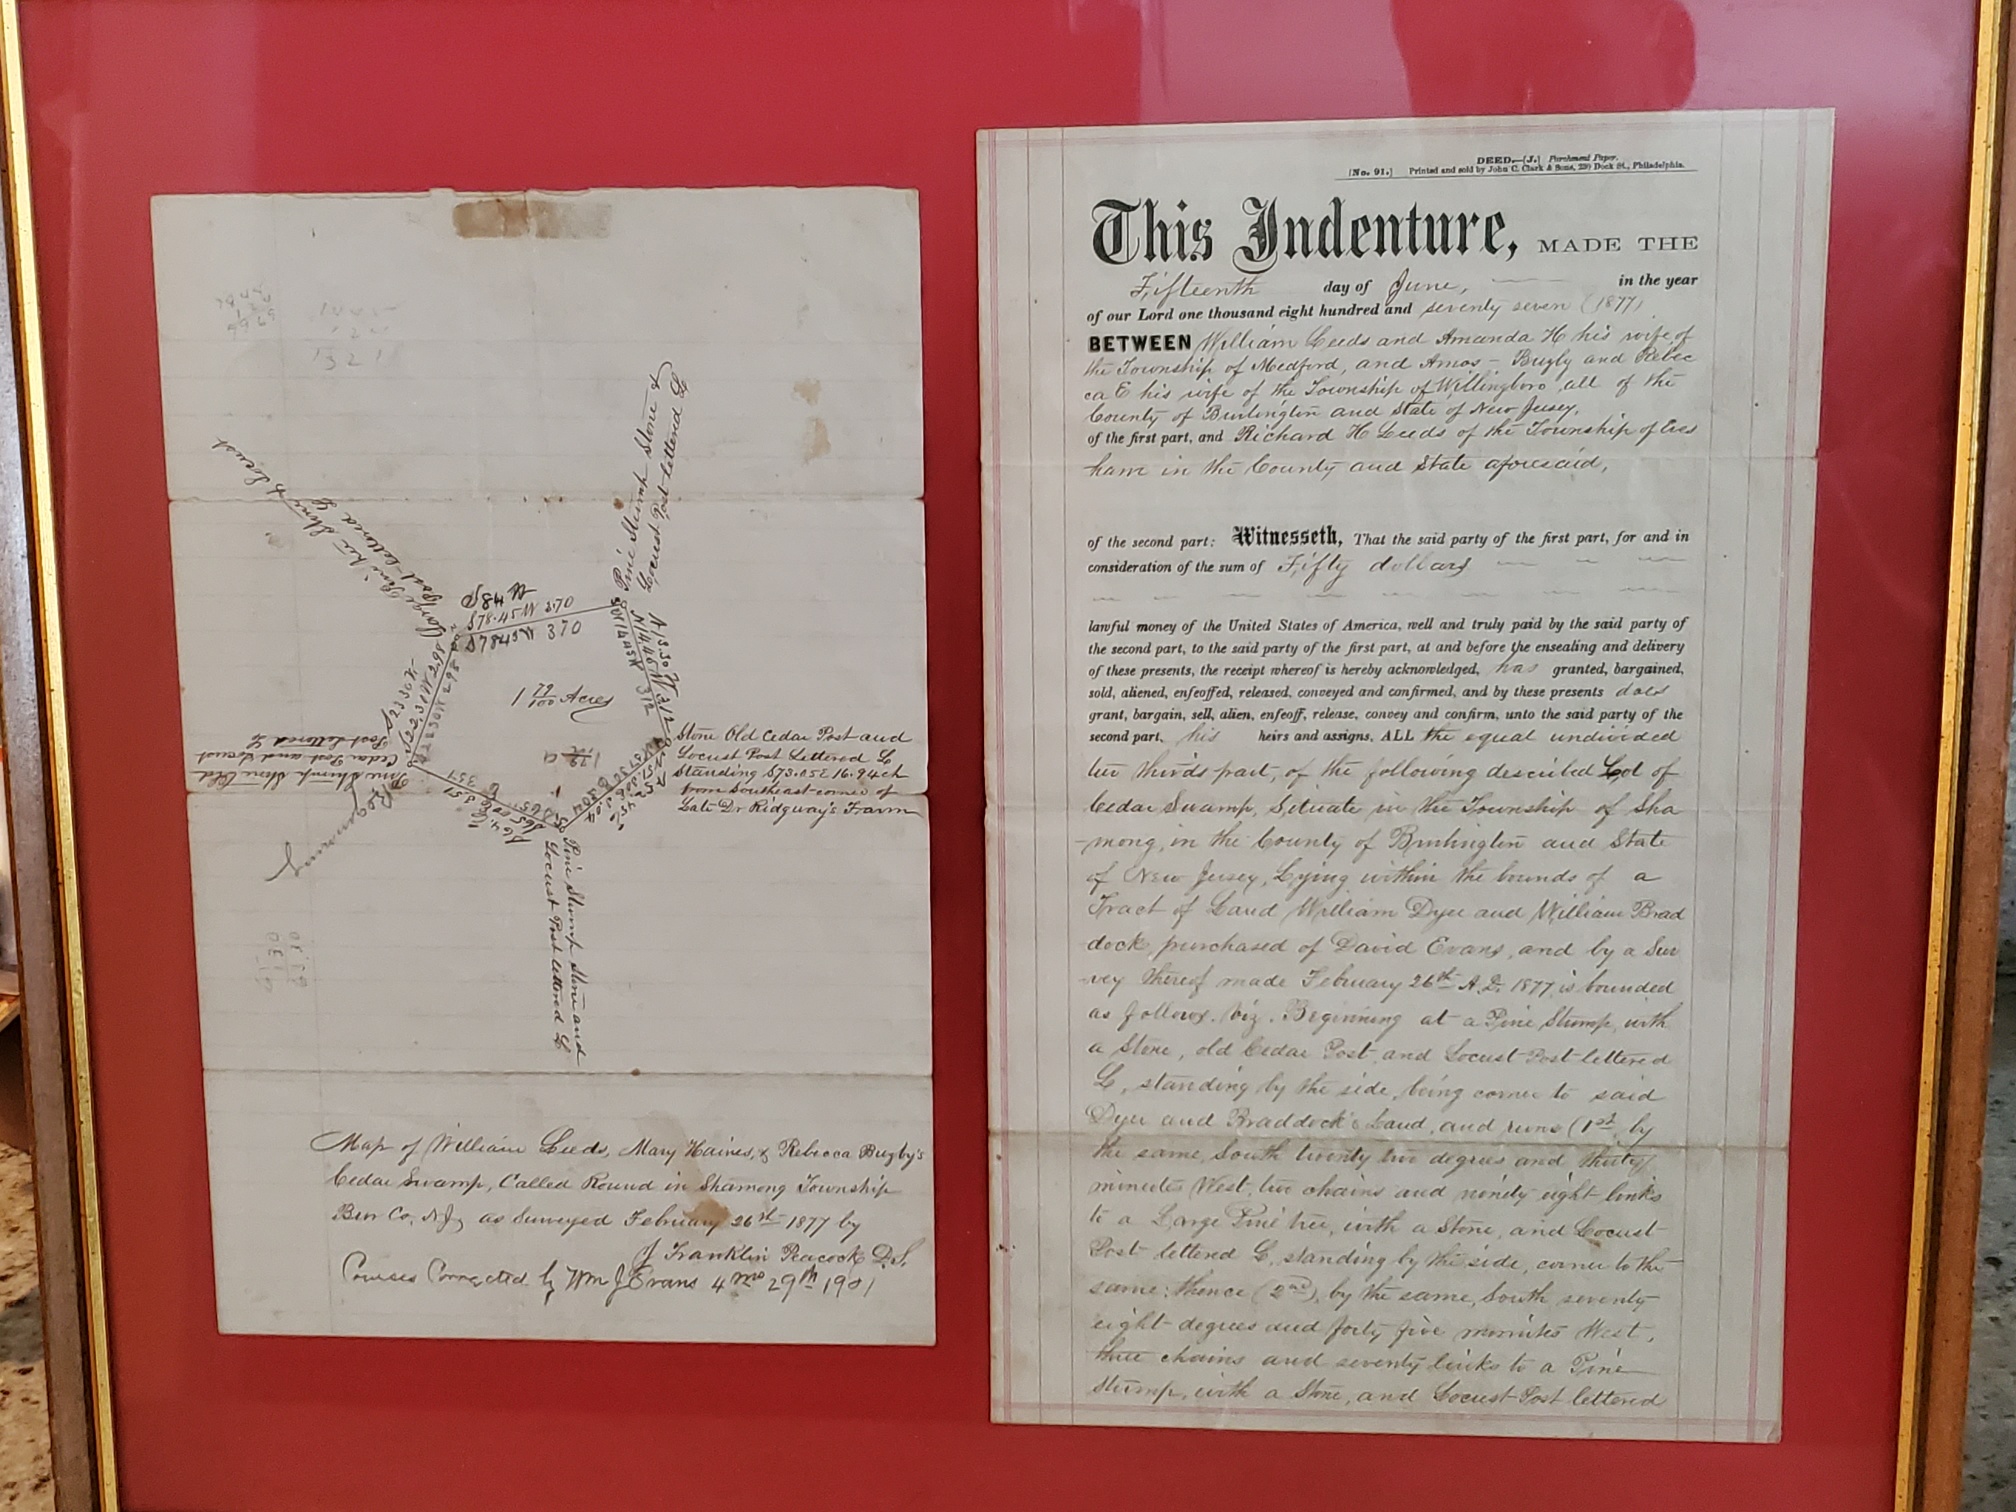 Large Pine tree Stone & Locust
Post Lettered L
Pine Stump Stone &
Locust Post Lettered L
S78.45W 3.70
S78.45W 370
1 79/100 Acres
Beginning
Pine Stump Stone Old
Cedar Post and Locust
Post Lettered L
Stone Old Cedar Post and
Locust Post Lettered L
Standing S73.05E 16.94 ch
from Southeast corner of
Late Dr Ridgway's Farm
Pine Stump Stone and
Locust Post lettered L
Map of William Leeds, Mary Haines, & Rebecca Buzby's
Cedar Swamp, Called Round in Shamong Township
Bur Co, N.J, as Surveyed February 26th 1877 by
J Franklin Peacock D.S.
Courses Corrected by Wm J Evans 4 mo 29th 1901
DEED.—[J.] Parchment Paper.
[No. 91.] Printed and sold by John C. Clark & Sons, 230 Dock St., Philadelphia.
This Indenture, MADE THE
Fifteenth day of June, in the year
of our Lord one thousand eight hundred and seventy seven (1877)
BETWEEN William Leeds and Amanda H his wife of
the Township of Medford, and Amos Buzby and Rebec
ca E his wife of the Township of Willingboro all of the
County of Burlington and State of New Jersey,
of the first part, and Richard H Leeds of the Township of Eves
ham in the County and State aforesaid,
of the second part: Witnesseth, That the said party of the first part, for and in
consideration of the sum of Fifty dollars
lawful money of the United States of America, well and truly paid by the said party of
the second part, to the said party of the first part, at and before the ensealing and delivery
of these presents, the receipt whereof is hereby acknowledged, has granted, bargained,
sold, aliened, enfeoffed, released, conveyed and confirmed, and by these presents does
grant, bargain, sell, alien, enfeoff, release, convey and confirm, unto the said party of the
second part, his heirs and assigns, ALL the equal undivided
two thirds part, of the following described Lot of
Cedar Swamp, Situate in the Township of Sha
-mong, in the County of Burlington and State
of New Jersey, Lying within the bounds of a
Tract of Land William Dyer and William Brad
dock, purchased of David Evans, and by a Sur
-vey thereof made February 26th A.D. 1877, is bounded
as follows. viz. Beginning at a Pine Stump, with
a Stone, old Cedar Post, and Locust Post lettered
L, standing by the side, being corner to said
Dyer and Braddock's Land, and runs (1st by
the same, South twenty two degrees and thirty
minutes West, two chains and ninety eight links
to a Large Pine tree, with a Stone, and Locust
Post lettered L, standing by the side, corner to the
same; thence (2nd), by the same, South seventy
eight degrees and forty five minutes West,
three chains and seventy links to a Pine
Stump, with a Stone, and Locust Post lettered